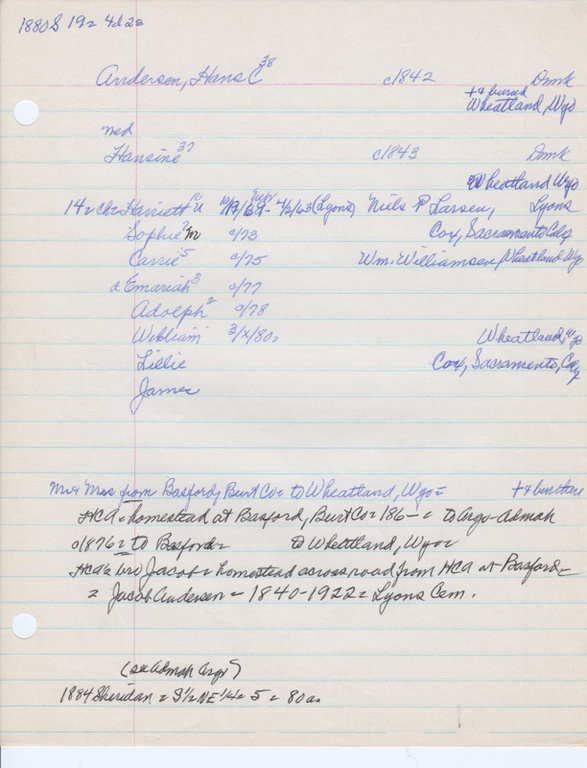 1880S 19= 4d2s
Andersen, Hans C 38 c1842 Dnmk
+ & buried
Wheatland, Wyo
md
Hansine 37 c1843 Dnmk
Wheatland Wyo
14= ch= Harriett 4/2/63 (Lyons) Niels P Larsen, Lyons
Sophie 7 c/73 Cox, Sacramento Calif
Carrie 5 c/75 Wm. Williamsen, Wheatland Wyo
d Emariah 3 c/77
Adolph 2 c/78
William 3/x/80= Wheatland, Wyo
Lillie Cox, Sacramento, Calif
James
Mr & Mrs from Basford, Burt Co= to Wheatland, Wyo= + & bur there
HCA = homestead at Basford, Burt Co = 186- = to Argo-Admah
c1876 = to Basford = to Wheatland, Wyo=
HCA's bro Jacob = homestead across road from HCA at Basford =
= Jacob Andersen = 1840-1922 = Lyons Cem.
(see Admah Argo)
1884 Sheridan = S½ NE¼ = 5 = 80a=